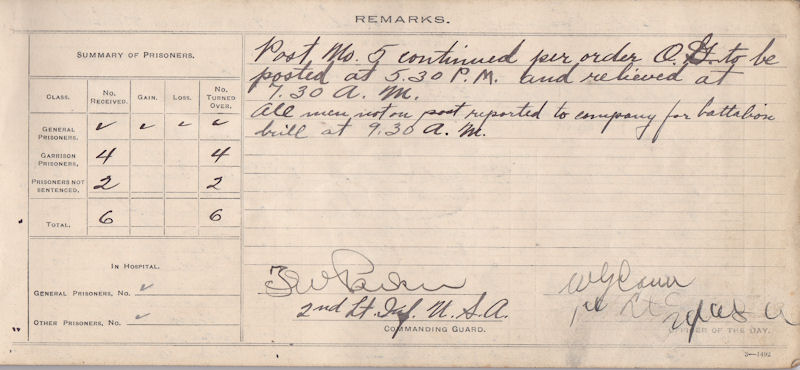 REMARKS.
SUMMARY OF PRISONERS.
CLASS. NO. RECEIVED. GAIN. LOSS. NO. TURNED OVER.
GENERAL PRISONERS. ✓ ✓ ✓ ✓
GARRISON PRISONERS. 4 4
PRISONERS NOT SENTENCED. 2 2
TOTAL. 6 6
IN HOSPITAL.
GENERAL PRISONERS, NO. ✓
OTHER PRISONERS, NO. ✓
Post No. 5 continued per order O.D. to be
posted at 5.30 P.M. and relieved at
7.30 A.M.
All men not on post reported to company for battalion
drill at 9.30 A.M.
2nd Lt. Inf. U.S.A.
COMMANDING GUARD.
OFFICER OF THE DAY.
3—1492